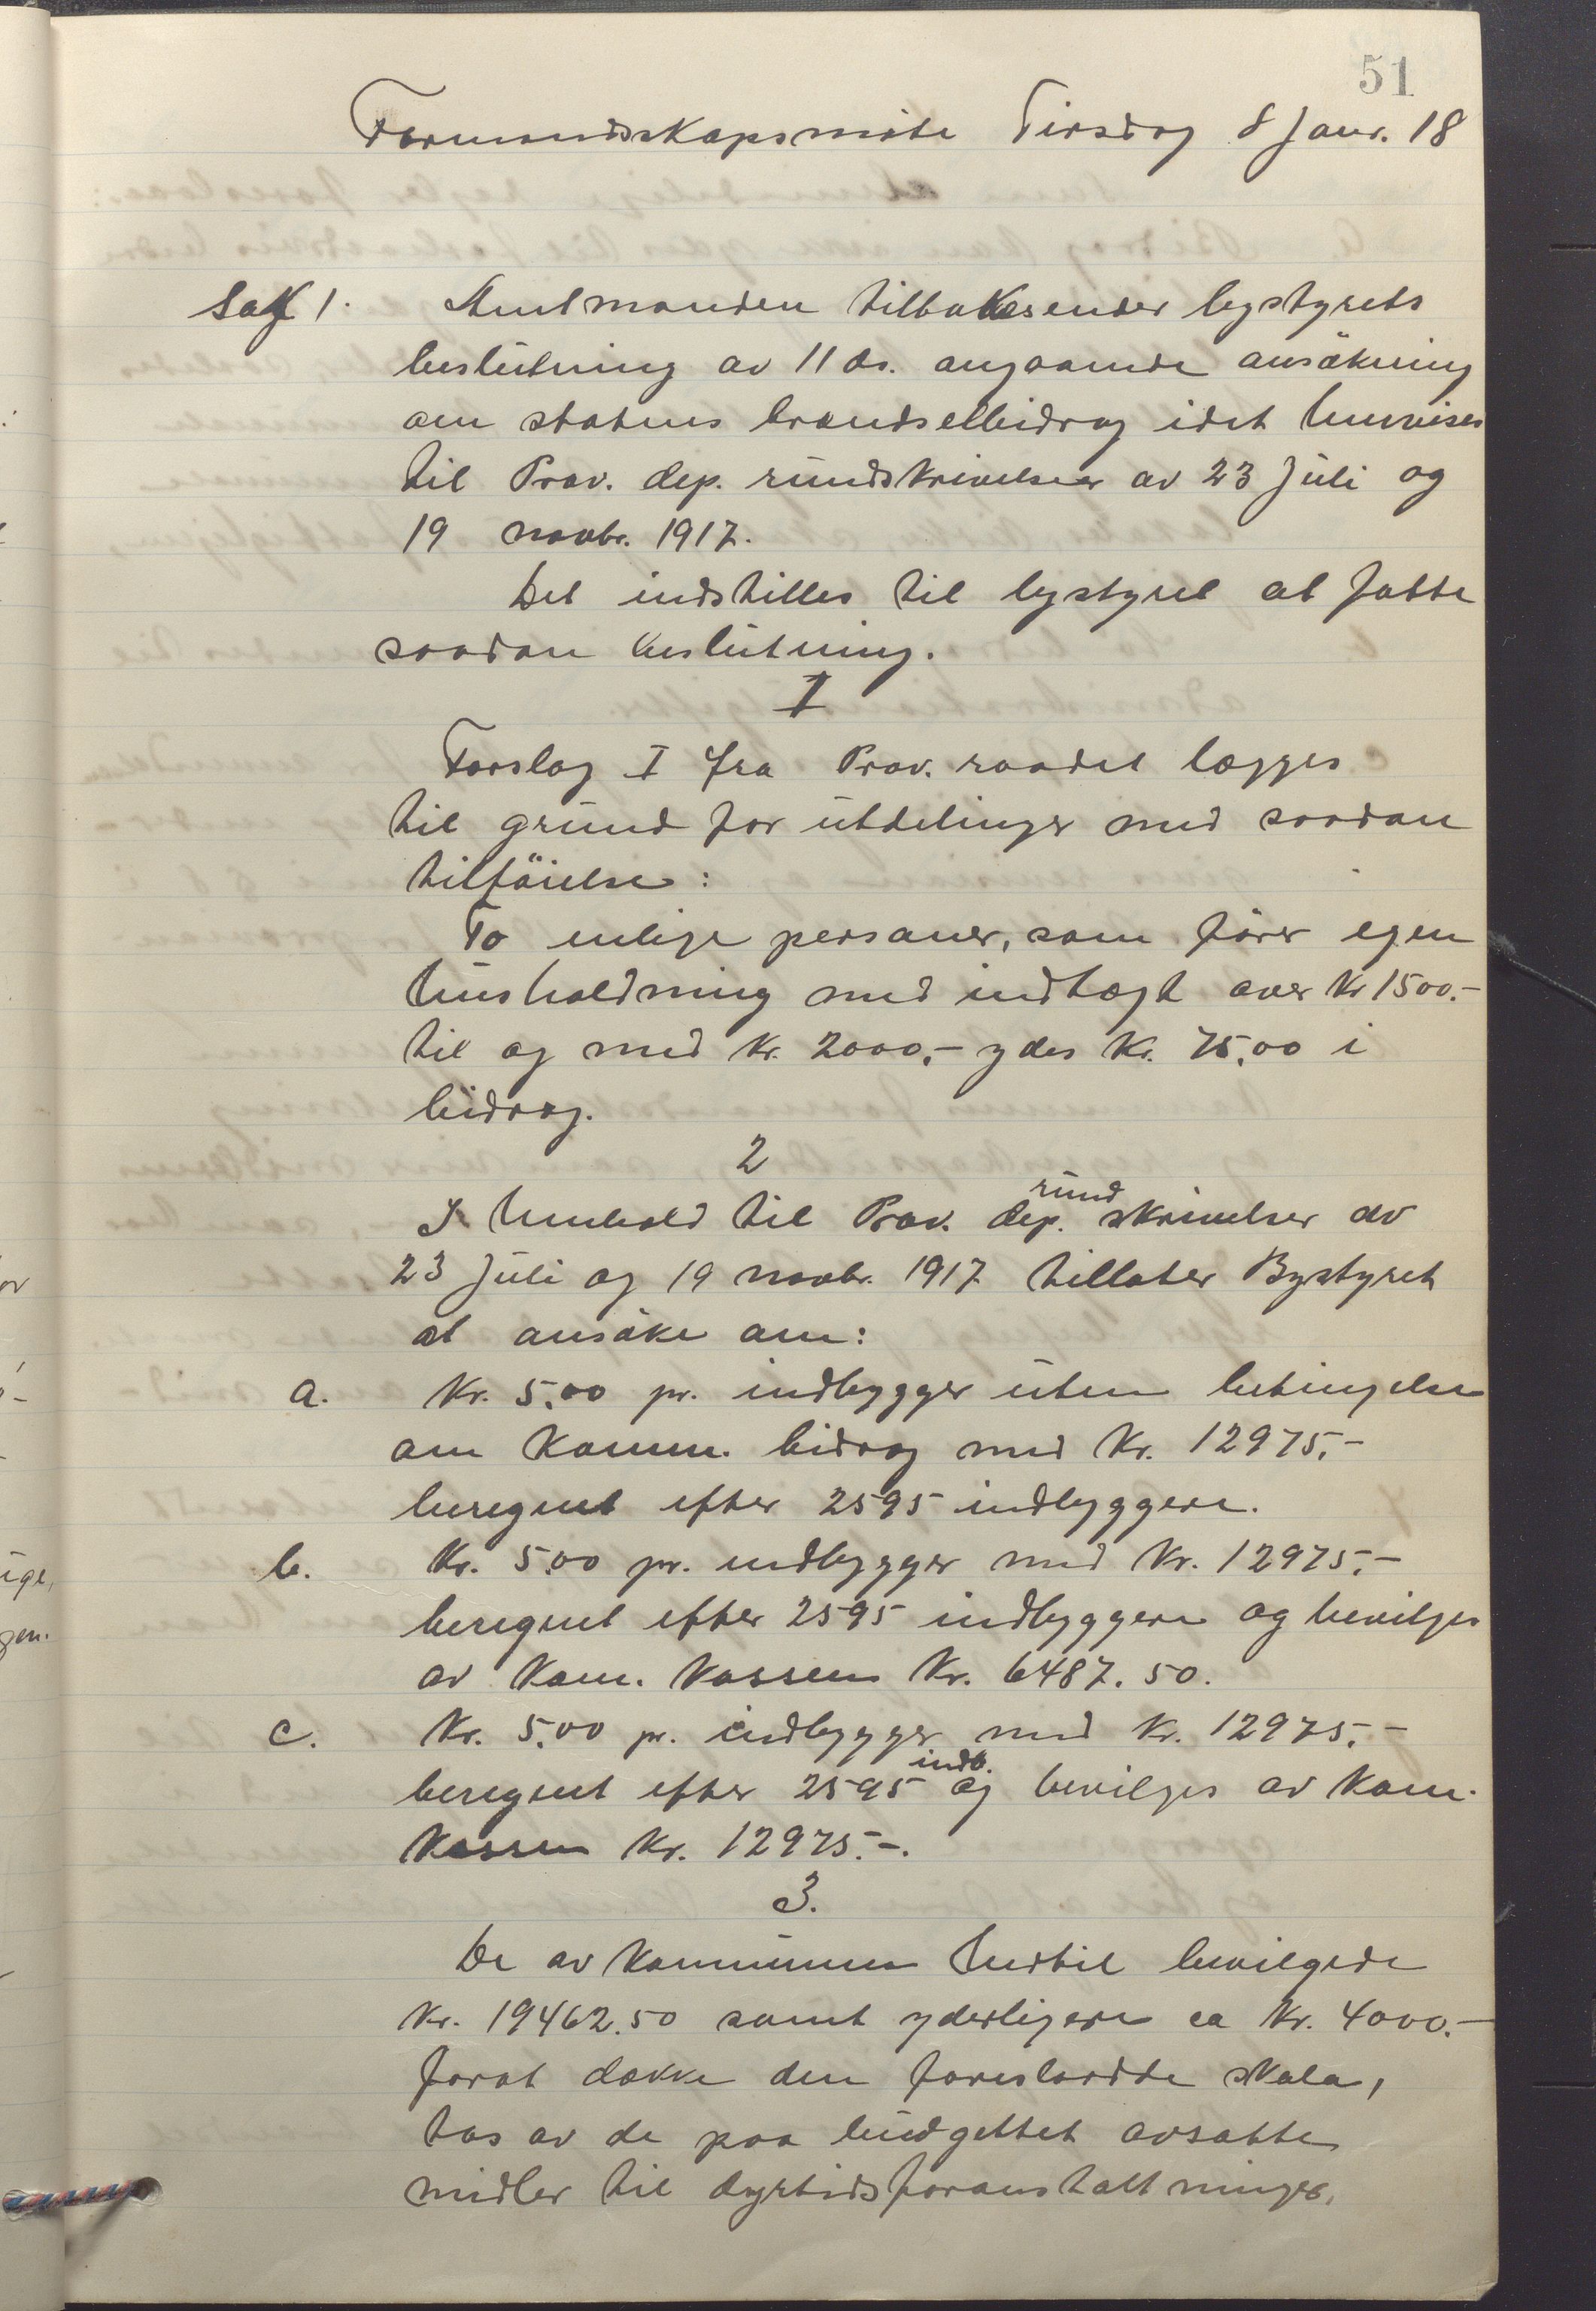 51
Formandskapsmöte Tirsdag 8 Janr. 18
Sak 1. Amtmanden tilbakesender bystyrets
beslutning av 11 ds. angaaende ansökning
om statens brændselbidrag idet henvises
til Prov. dep. rundskrivelser av 23 Juli og
19 novbr. 1917.
Det indstilles til bystyret at fatte
saadan beslutning.
I
Forslag I fra Prov. raadet lægges
til grund for utdelinger med saadan
tilföielse:
To enlige personer, som förer egen
husholdning med indtægt over Kr 1500.-
til og med Kr. 2000,- ydes Kr. 75,00 i
bidrag.
2
I henhold til Prov. dep. rundskrivelser av
23 Juli og 19 novbr. 1917 tillater Bystyret
at ansöke om:
a. Kr. 5,00 pr. indbygger uten betingelse
om Komm. bidrag med Kr. 12975,-
beregnet efter 2595 indbyggere.
b. Kr. 5,00 pr. indbygger med Kr. 12975,-
beregnet efter 2595 indbyggere og bevilges
av Kom. Kassen Kr. 6487.50.
c. Kr. 5,00 pr. indbygger med Kr. 12975,-
beregnet efter 2595 indb. og bevilges av Kom.
Kassen Kr. 12975.-.
3.
De av Kommunen hertil bevilgede
Kr. 19462.50 samt yderligere ca Kr. 4000.-
forat dække den foreslaadde skala,
tas av de paa budgettet avsatte
midler til dyrtidsforanstaltninger.